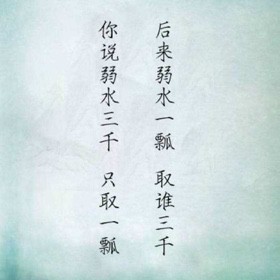 你说弱水三千 只取一瓢
后来弱水一瓢 取谁三千